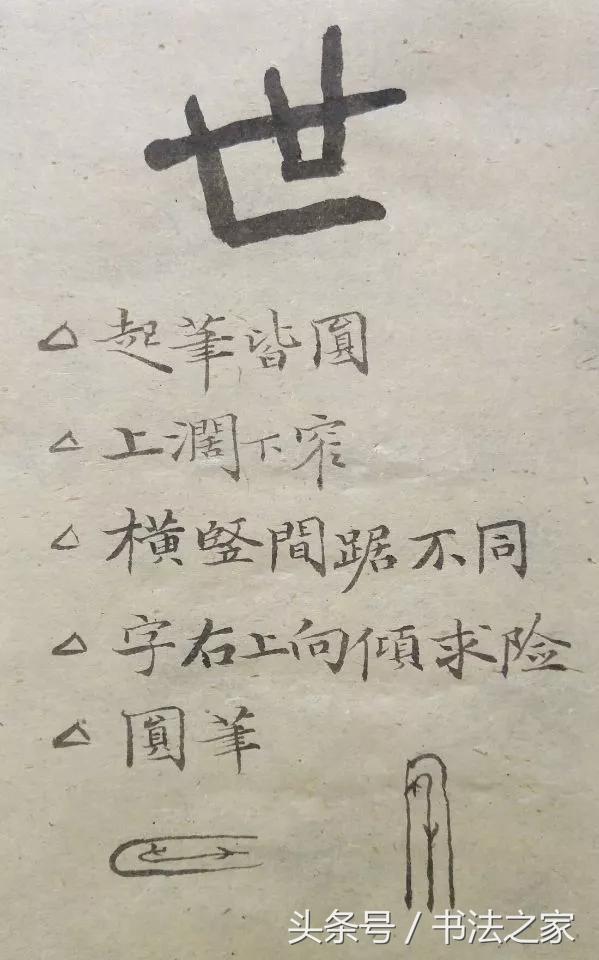 世
△起筆皆圓
△上濶下窄
△橫竪間踞不同
△字右上向傾求险
△圓筆
头条号 / 书法之家